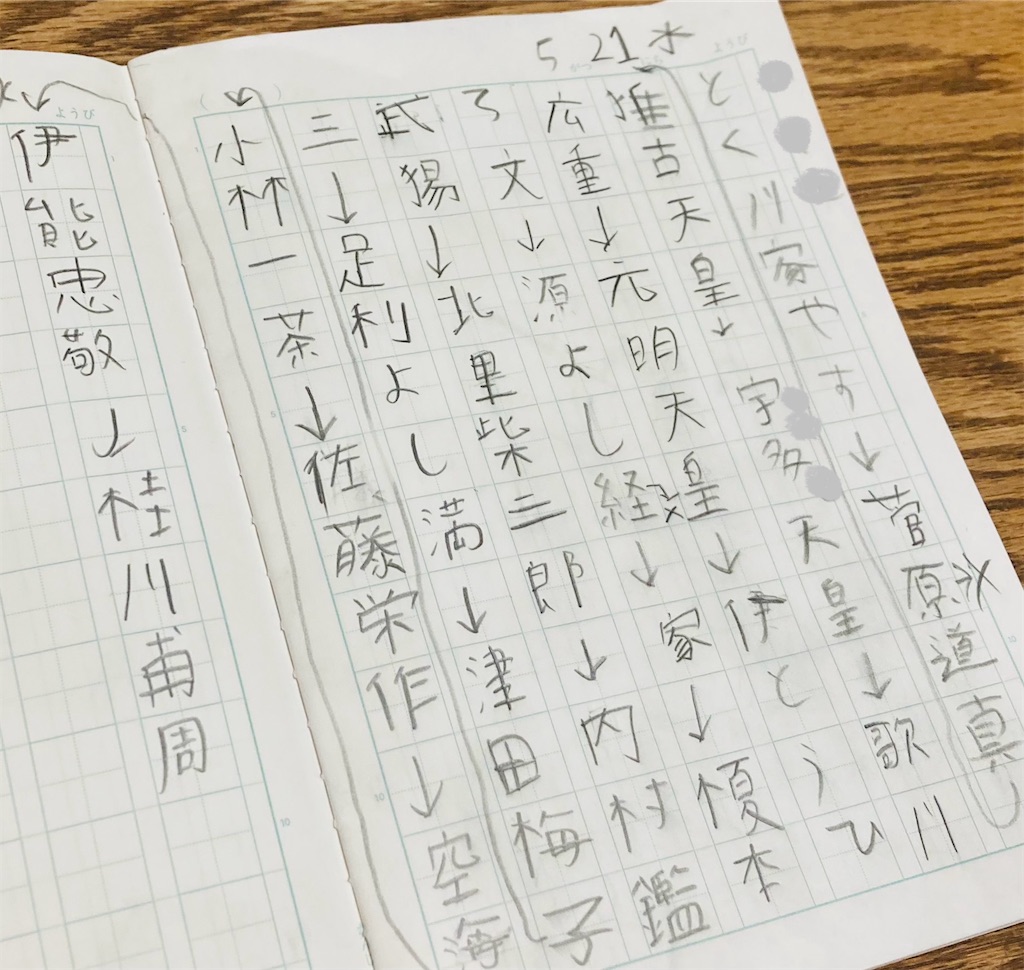 5 21 水
ようび
とく川家やす↓菅原道真
推古天皇↓宇多天皇↓歌川
広重↓元明天皇↓伊とうひ
ろ文↓源よし経↓家↓榎本
武揚↓北里柴三郎↓内村鑑
三↓足利よし満↓津田梅子
小林一茶↓佐藤栄作↓空海
ようび
伊能忠敬↓桂川甫周